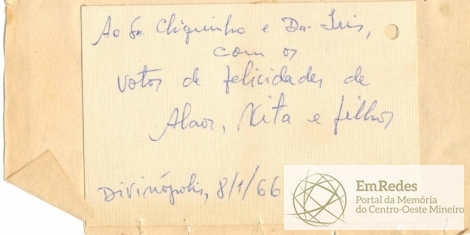 Ao Sr. Chiquinho e Da. Iris,
com os
votos de felicidades de
Alaor, Nita e filhos
Divinópolis, 8/1/66
EmRedes
Portal da Memória
do Centro-Oeste Mineiro